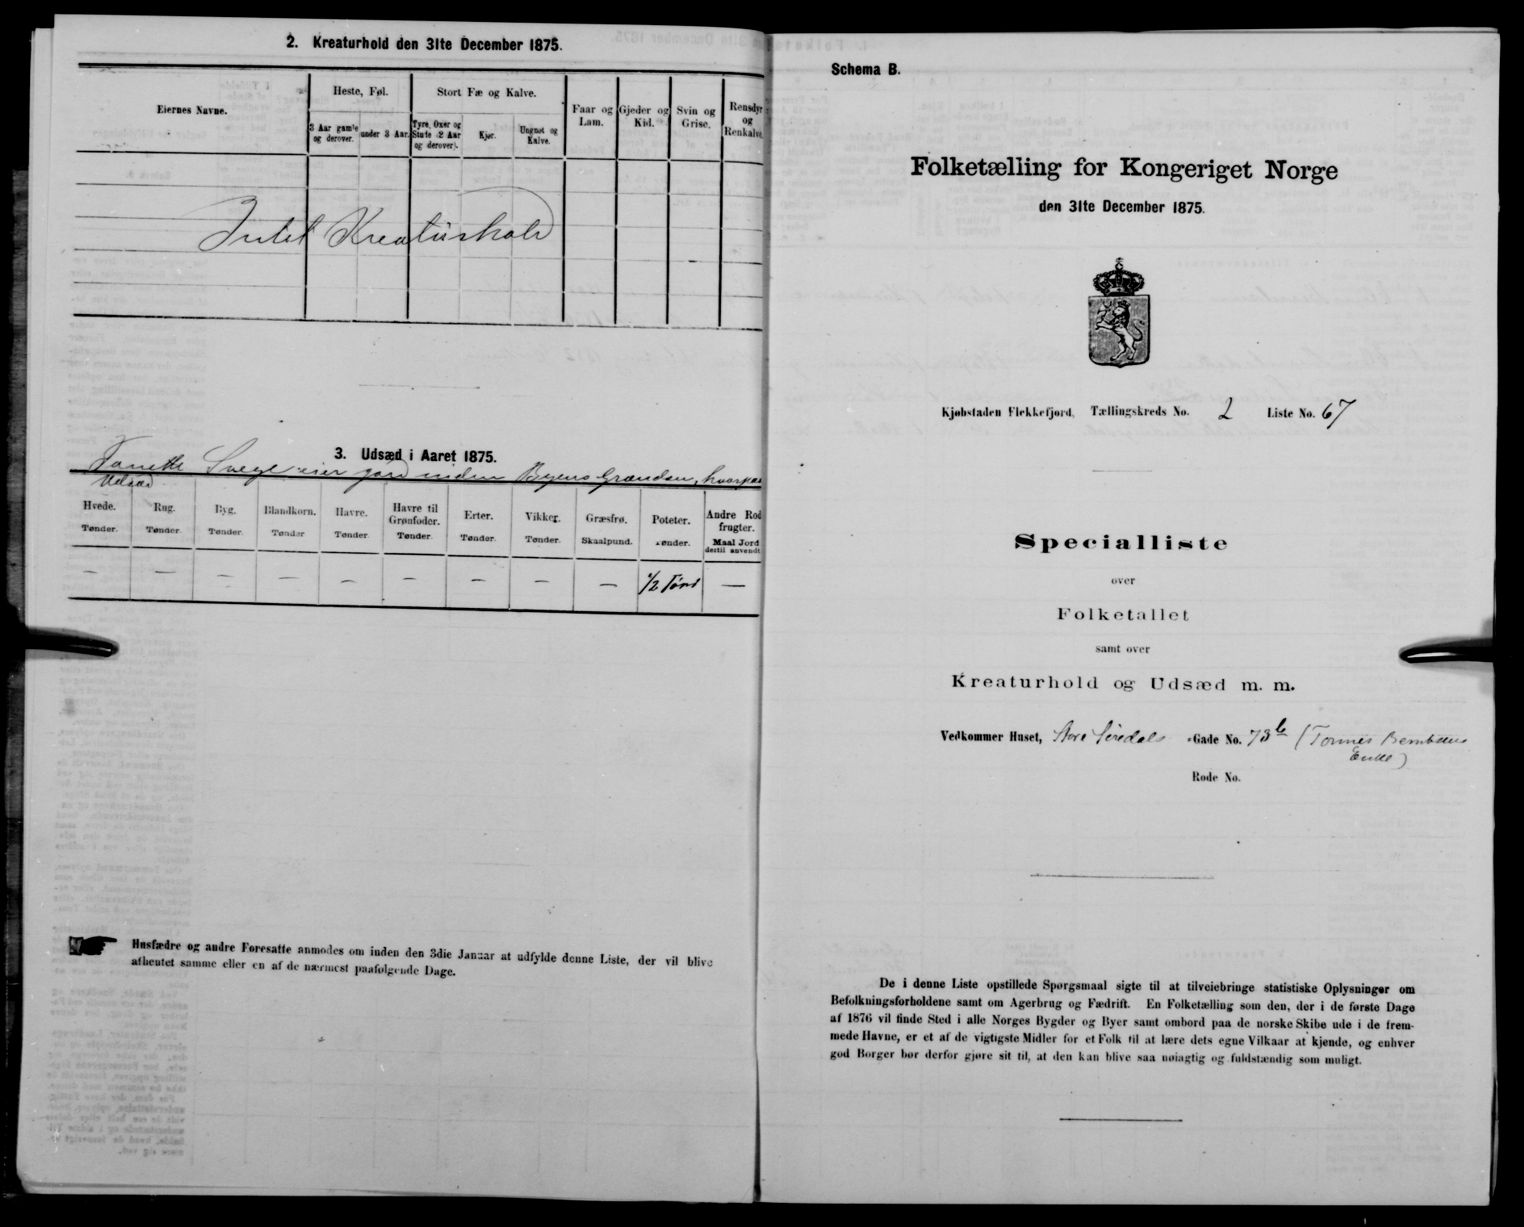 2. Kreaturhold den 31te December 1875.
Eiernes Navne.
Heste, Føl.
Stort Fæ og Kalve.
Faar og Lam.
Gjeder og Kid.
Svin og Grise.
Rensdyr og Renkalve.
3 Aar gamle og derover.
under 3 Aar.
Tyre, Oxer og Stute (2 Aar og derover).
Kjør.
Ungnøt og Kalve.
Intet Kreaturhold
3. Udsæd i Aaret 1875.
eier jord inden Byens Grændser, hvorpaa
Udsæd
Hvede. Tønder.
Rug. Tønder.
Byg. Tønder.
Blandkorn. Tønder
Havre. Tønder.
Havre til Grønfoder. Tønder.
Erter. Tønder.
Vikker. Tønder.
Græsfrø. Skaalpund.
Poteter. Tønder.
Andre Rodfrugter. Maal Jord dertil anvendt
— — — — — — — — — 1/2 Tønd —
Husfædre og andre Foresatte anmodes om inden den 3die Januar at udfylde denne Liste, der vil blive
afhentet samme eller en af de nærmest paafølgende Dage.
Schema B.
Folketælling for Kongeriget Norge
den 31te December 1875.
Kjøbstaden Flekkefjord, Tællingskreds No. 2 Liste No. 67
Specialliste
over
Folketallet
samt over
Kreaturhold og Udsæd m. m.
Vedkommer Huset, Store Siredals -Gade No. 73b (Tønnes Berntsens
Enke)
Rode No.
De i denne Liste opstillede Spørgsmaal sigte til at tilveiebringe statistiske Oplysninger om
Befolkningsforholdene samt om Agerbrug og Fædrift. En Folketælling som den, der i de første Dage
af 1876 vil finde Sted i alle Norges Bygder og Byer samt ombord paa de norske Skibe ude i de frem-
mede Havne, er et af de vigtigste Midler for et Folk til at lære dets egne Vilkaar at kjende, og enhver
god Borger bør derfor gjøre sit til, at den kan blive saa nøiagtig og fuldstændig som muligt.